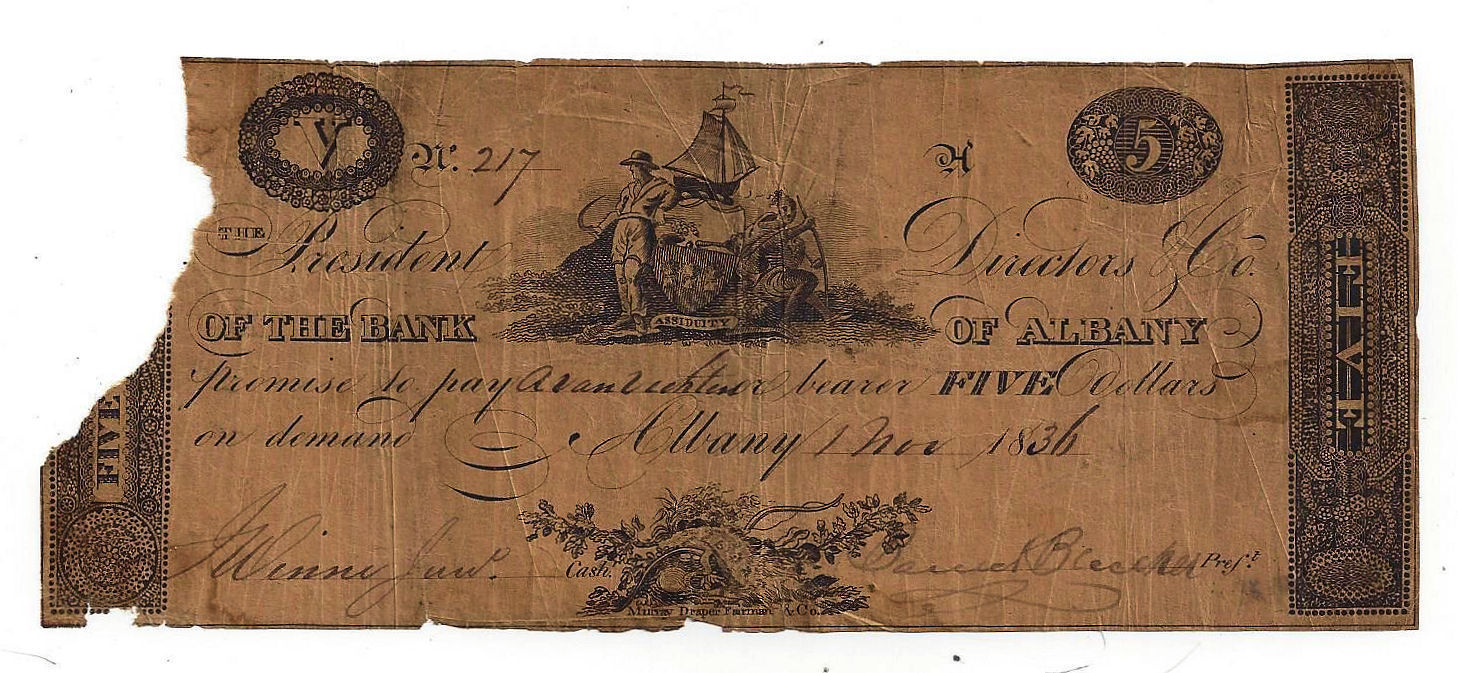 V Nº. 217 H 5
THE President Directors & Co.
ASSIDUITY
OF THE BANK OF ALBANY
promise to pay or bearer FIVE dollars
on demand Albany 1 Nov 1836
FIVE
FIVE
J Winne Junr. Cash. Pres.t
Murray Draper Fairman & Co.